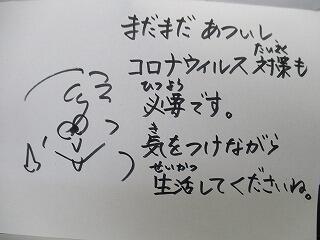 まだまだ あついし
コロナウィルス 対策も
たいさく
必要です。
ひつよう
気をつけながら
き
生活してくださいね。
せいかつ